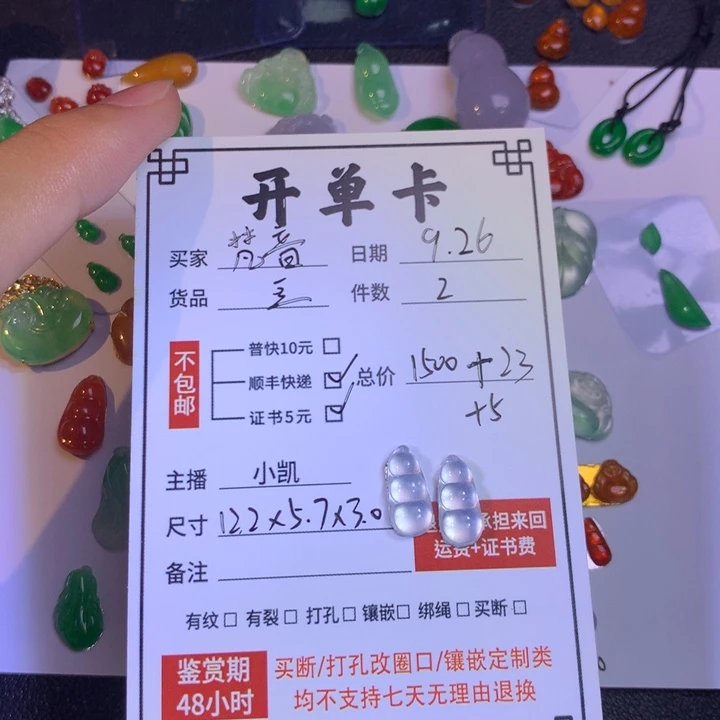 开单卡
买家 梵音 日期 9.26
货品 玉 件数 2
不包邮
普快10元 □
顺丰快递 ☑ 总价 1500+23
证书5元 ☑ +5
主播 小凯
尺寸 12.2×5.7×3.0
承担来回
运费+证书费
备注
有纹□ 有裂□ 打孔□ 镶嵌□ 绑绳□ 买断□
鉴赏期
48小时
买断/打孔改圈口/镶嵌定制类
均不支持七天无理由退换